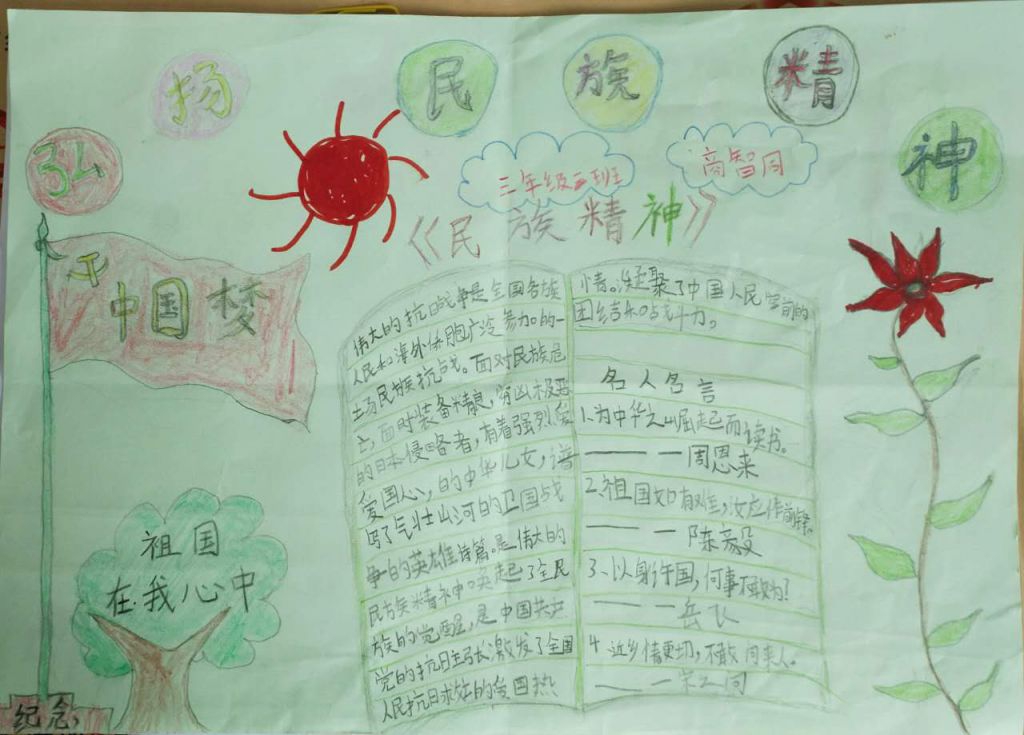 弘扬民族精神
三年级五班
商智月
《民族精神》
中国梦
祖国
在我心中
纪念
伟大的抗日战争是全国各族
人民和海外侨胞广泛参加的一
场民族抗战。面对民族危
亡,面对装备精良,穷凶极恶
的日本侵略者,有着强烈爱
爱国心,的中华儿女,谱
写了气壮山河的卫国战
争的英雄诗篇。是伟大的
民族精神唤起了全民
族的觉醒,是中国共产
党的抗日主张激发了全国
人民抗日救亡的爱国热
情。凝聚了中国人民空前的
团结和战斗力。
名人名言
1.为中华之崛起而读书。
———周恩来
2.祖国如有难,汝应作前锋。
———陈毅
3、以身许国,何事不敢为!
———岳飞
4.近乡情更切,不敢问来人。
———宋之问